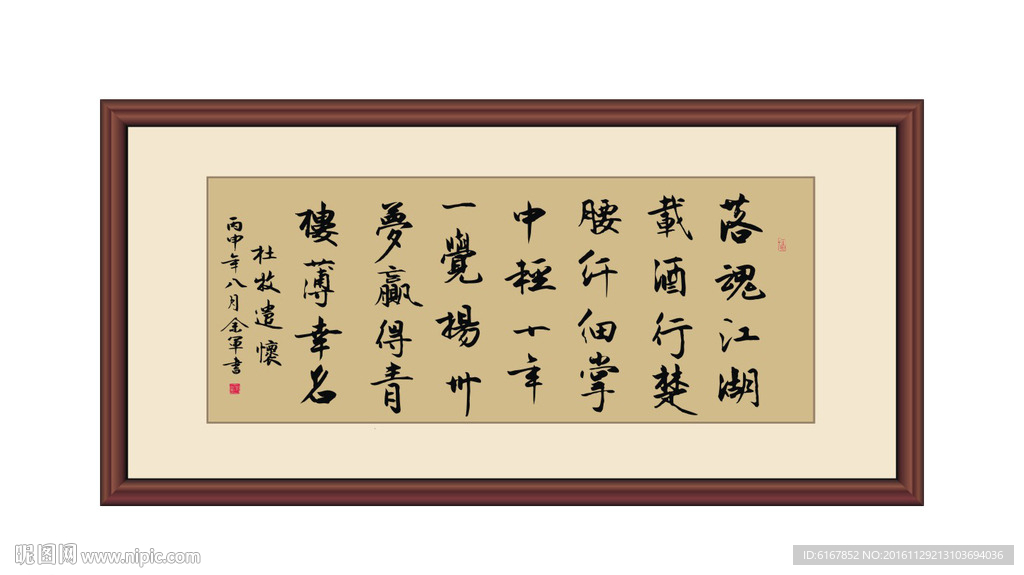 落魂江湖
載酒行楚
腰纤细掌
中輕十年
一覺揚州
夢贏得青
樓薄幸名
杜牧遣懷
丙申年八月余軍书
昵图网 www.nipic.com
ID:6167852 NO:20161129213103694036